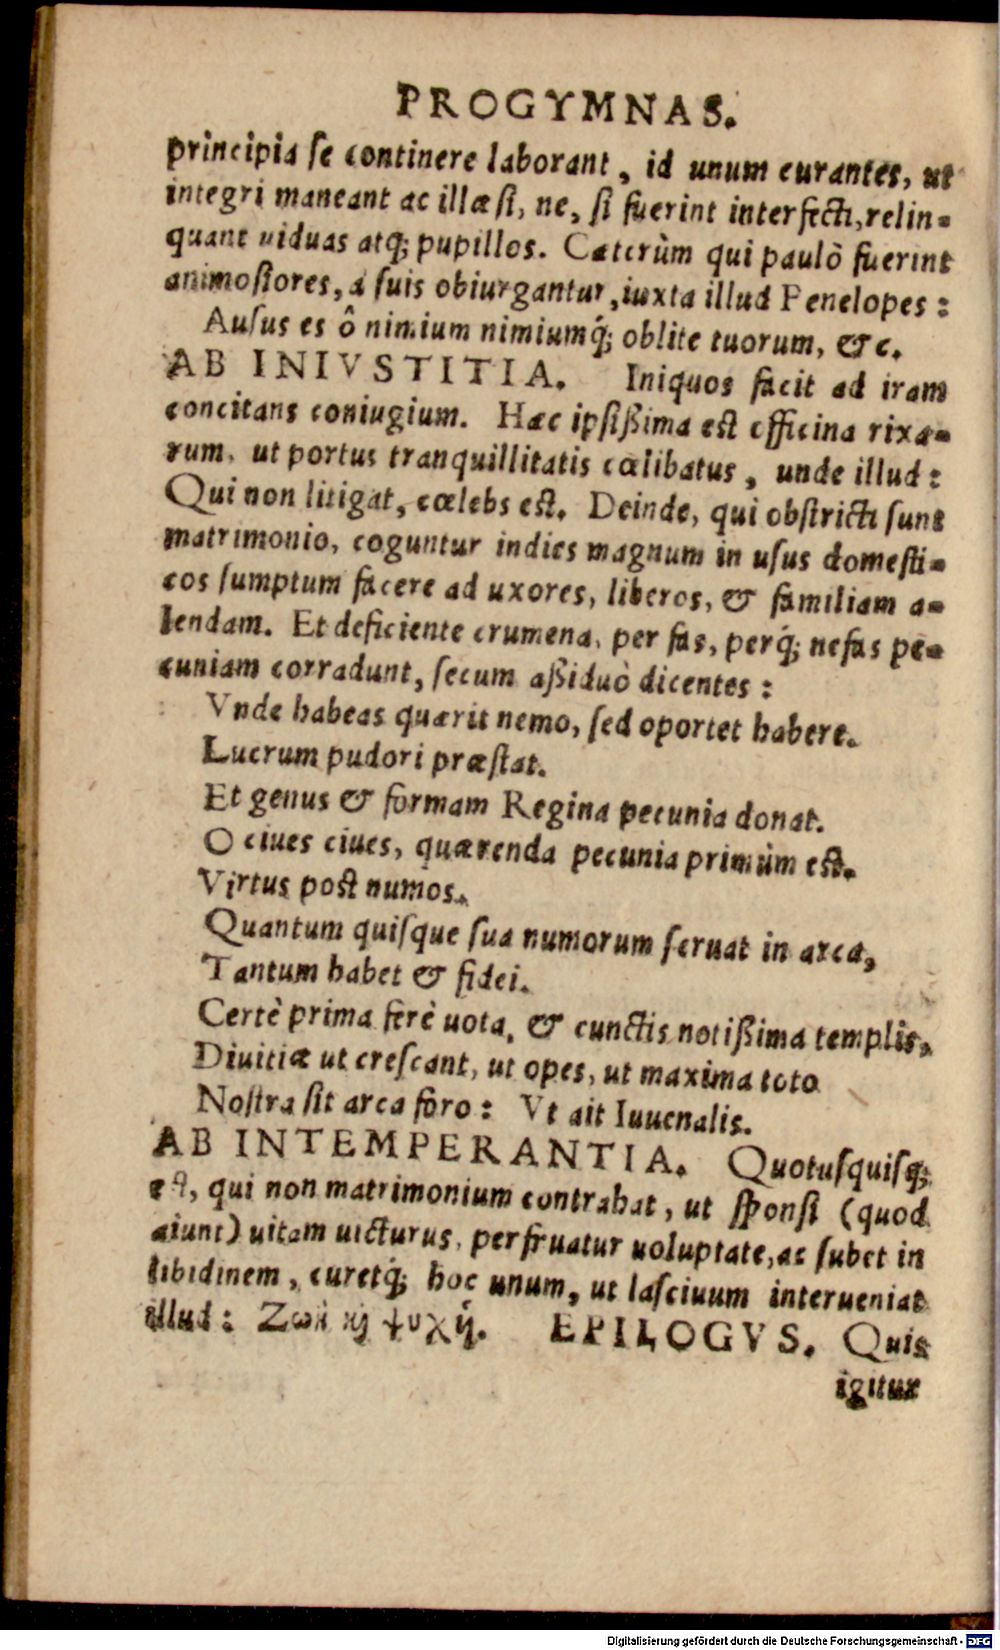 PROGYMNAS.
principia se continere laborant, id unum curantes, ut
integri maneant ac illæsi, ne, si fuerint interfecti, relin-
quant uiduas atq; pupillos. Cæterùm qui paulò fuerint
animosiores, à suis obiurgantur, iuxta illud Penelopes:
Ausus es ô nimium nimiumq́; oblite tuorum, &c.
AB INIVSTITIA. Iniquos facit ad iram
concitans coniugium. Hæc ipsißima est officina rixa-
rum, ut portus tranquillitatis cælibatus, unde illud:
Qui non litigat, cælebs est. Deinde, qui obstricti sunt
matrimonio, coguntur indies magnum in usus domesti-
cos sumptum facere ad uxores, liberos, & familiam a-
lendam. Et deficiente crumena, per fas, perq́; nefas pe-
cuniam corradunt, secum aßiduò dicentes:
Vnde habeas quærit nemo, sed oportet habere.
Lucrum pudori præstat.
Et genus & formam Regina pecunia donat.
O ciues ciues, quærenda pecunia primùm est.
Virtus post numos.
Quantum quisque sua numorum seruat in arca,
Tantum habet & fidei.
Certè prima ferè uota, & cunctis notißima templis,
Diuitiæ ut crescant, ut opes, ut maxima toto
Nostra sit arca foro: Vt ait Iuuenalis.
AB INTEMPERANTIA. Quotusquisq;
est, qui non matrimonium contrahat, ut sponsi (quod
aiunt) uitam uicturus, perfruatur uoluptate, ac subet in
libidinem, curetq́; hoc unum, ut lasciuum interueniat
illud: Ζωὴ ϗ̀ ψυχή. EPILOGVS. Quis
igitur
Digitalisierung gefördert durch die Deutsche Forschungsgemeinschaft - DFG